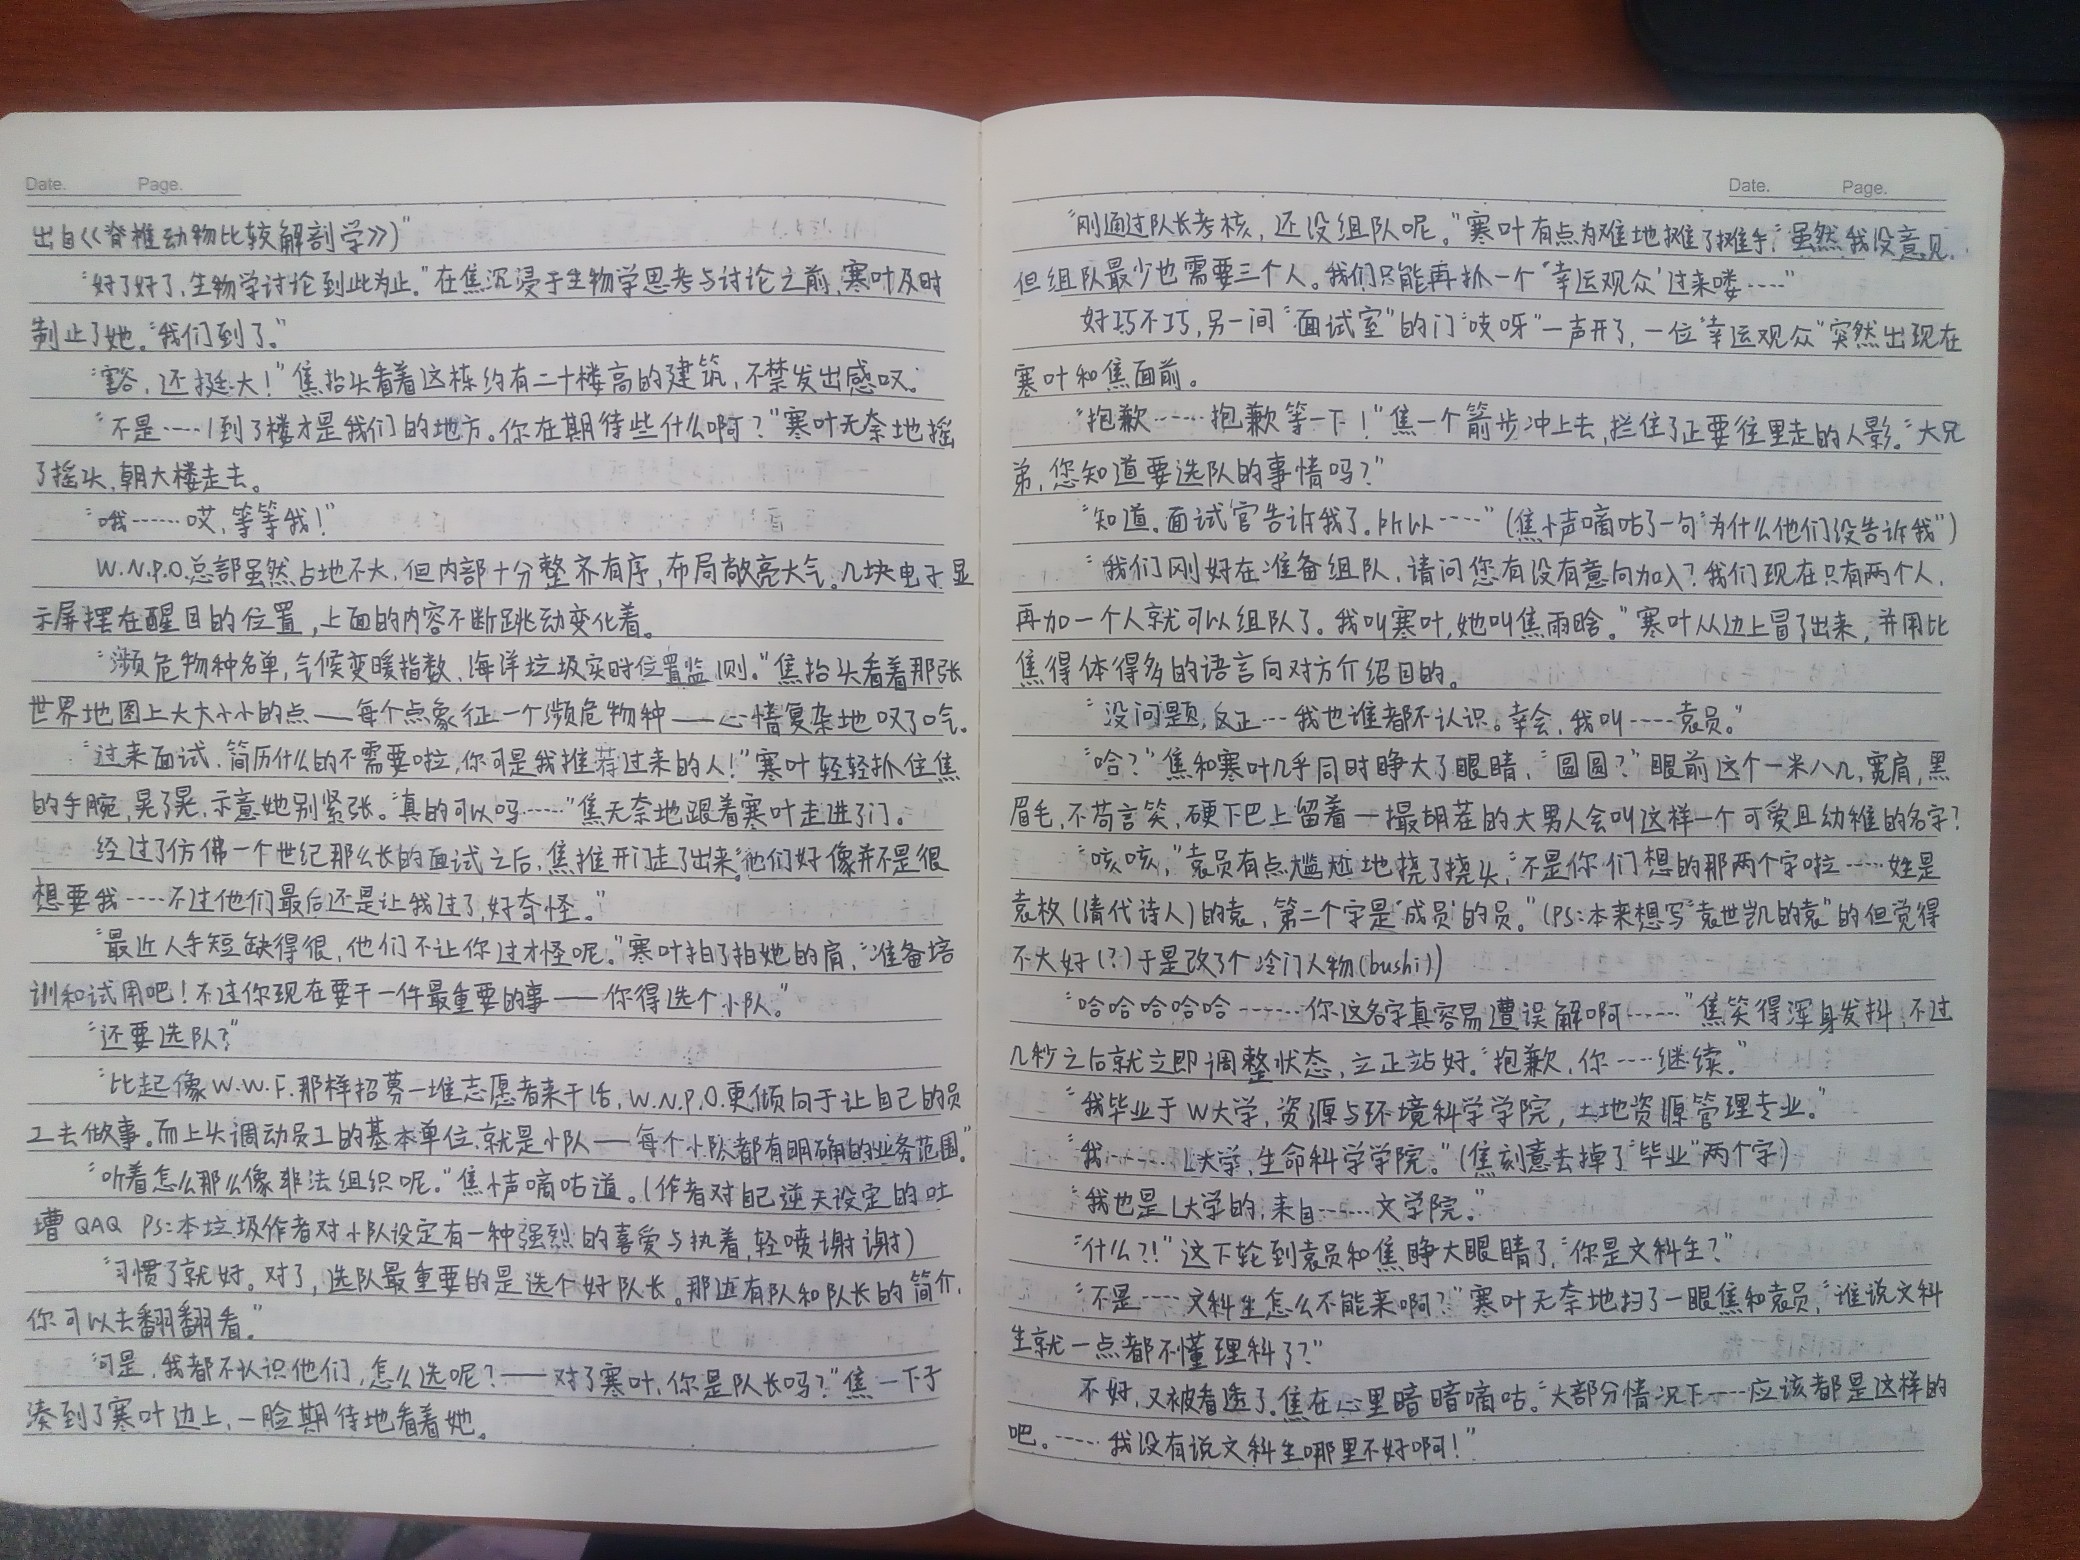 Date. Page.
出自《脊椎动物比较解剖学》）”
“好了好了，生物学讨论到此为止。”在焦沉浸于生物学思考与讨论之前，寒叶及时
制止了她。“我们到了。”
“豁，还挺大！”焦抬头看着这栋约有二十楼高的建筑，不禁发出感叹。
“不是……1到3楼才是我们的地方。你在期待些什么啊？”寒叶无奈地摇
了摇头，朝大楼走去。
“哦……哎，等等我！”
W.N.P.O.总部虽然占地不大，但内部十分整齐有序，布局敞亮大气。几块电子显
示屏摆在醒目的位置，上面的内容不断跳动变化着。
“濒危物种名单，气候变暖指数，海洋垃圾实时位置监测。”焦抬头看着那张
世界地图上大大小小的点——每个点象征一个濒危物种——心情复杂地叹了口气。
“过来面试，简历什么的不需要啦，你可是我推荐过来的人！”寒叶轻轻抓住焦
的手腕，晃了晃，示意她别紧张。“真的可以吗……”焦无奈地跟着寒叶走进了门。
经过了仿佛一个世纪那么长的面试之后，焦推开门走了出来。“他们好像并不是很
想要我……不过他们最后还是让我过了，好奇怪。”
“最近人手短缺得很，他们不让你过才怪呢。”寒叶拍了拍她的肩，“准备培
训和试用吧！不过你现在要干一件最重要的事——你得选个小队。”
“还要选队？”
“比起像W.W.F.那样招募一堆志愿者来干活，W.N.P.O.更倾向于让自己的员
工去做事。而上头调动员工的基本单位，就是小队——每个小队都有明确的业务范围。”
“听着怎么那么像非法组织呢。”焦小声嘀咕道。（作者对自己逆天设定的吐
槽 QAQ PS：本垃圾作者对小队设定有一种强烈的喜爱与执着，轻喷谢谢）
“习惯了就好。对了，选队最重要的是选个好队长。那边有队和队长的简介，
你可以去翻翻看。”
“可是，我都不认识他们，怎么选呢？——对了寒叶，你是队长吗？”焦一下子
凑到了寒叶边上，一脸期待地看着她。
Date. Page.
“刚通过队长考核，还没组队呢。”寒叶有点为难地摊了摊手，“虽然我没意见，
但组队最少也需要三个人。我们只能再抓一个‘幸运观众’过来喽……”
好巧不巧，另一间“面试室”的门“吱呀”一声开了，一位“幸运观众”突然出现在
寒叶和焦面前。
“抱歉……抱歉等一下！”焦一个箭步冲上去，拦住了正要往里走的人影。“大兄
弟，您知道要选队的事情吗？”
“知道。面试官告诉我了。所以……”（焦小声嘀咕了一句“为什么他们没告诉我”）
“我们刚好在准备组队，请问您有没有意向加入？我们现在只有两个人，
再加一个人就可以组队了。我叫寒叶，她叫焦雨晗。”寒叶从边上冒了出来，并用比
焦得体得多的语言向对方介绍目的。
“没问题，反正…我也谁都不认识。幸会，我叫……袁员。”
“哈？”焦和寒叶几乎同时睁大了眼睛，“圆圆？”眼前这个一米八几，宽肩，黑
眉毛，不苟言笑，硬下巴上留着一撮胡茬的大男人会叫这样一个可爱且幼稚的名字？
“咳咳，”袁员有点尴尬地挠了挠头，“不是你们想的那两个字啦……姓是
袁枚（清代诗人）的袁，第二个字是‘成员’的员。”（PS：本来想写“袁世凯的袁”的但觉得
不大好（？）于是改了个冷门人物（bushi））
“哈哈哈哈哈……你这名字真容易遭误解啊……”焦笑得浑身发抖，不过
几秒之后就立即调整状态，立正站好。“抱歉，你……继续。”
“我毕业于W大学，资源与环境科学学院，土地资源管理专业。”
“我……L大学，生命科学学院。”（焦刻意去掉了“毕业”两个字）
“我也是L大学的，来自……文学院。”
“什么？！”这下轮到袁员和焦睁大眼睛了，“你是文科生？”
“不是……文科生怎么不能来啊？”寒叶无奈地扫了一眼焦和袁员，“谁说文科
生就一点都不懂理科了？”
不好，又被看透了。焦在心里暗暗嘀咕。“大部分情况下……应该都是这样的
吧。……我没有说文科生哪里不好啊！”